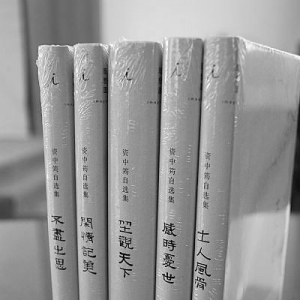 资中筠自选集
不盡之思
资中筠自选集
閑情記美
资中筠自选集
坐觀天下
资中筠自选集
感時憂世
资中筠自选集
士人風骨